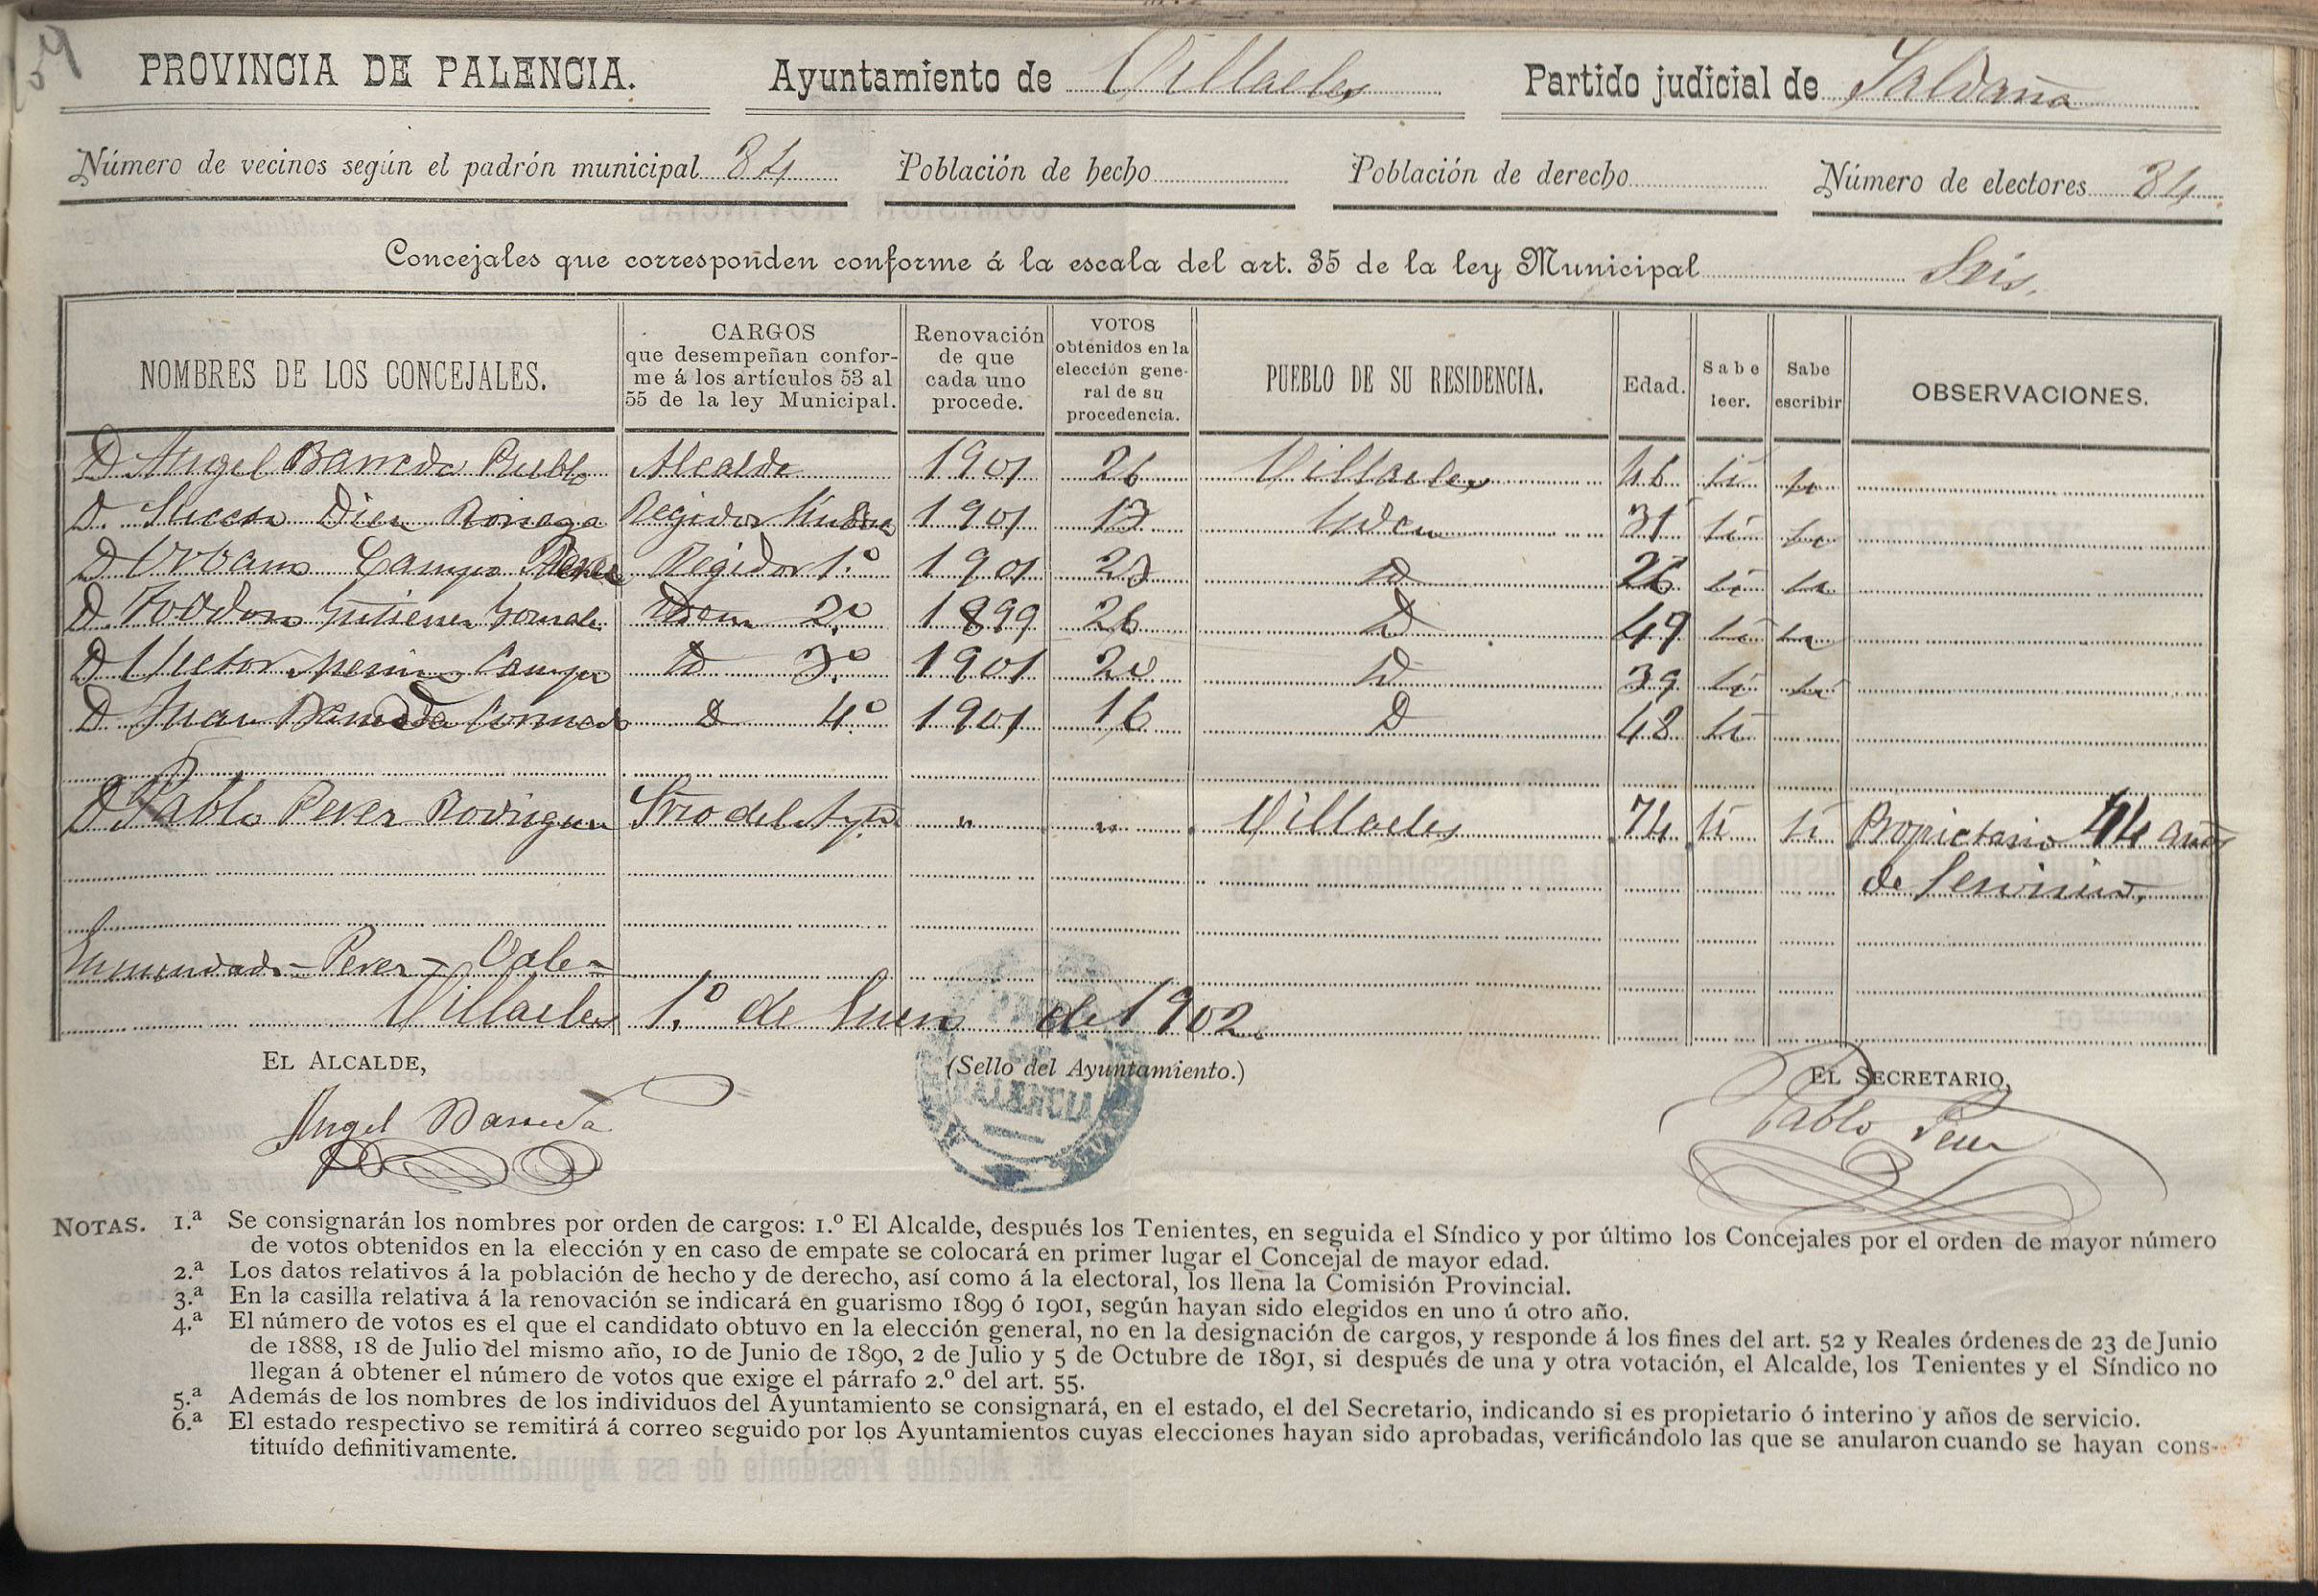 PROVINCIA DE PALENCIA. Ayuntamiento de Villaeles Partido judicial de Saldaña
Número de vecinos según el padrón municipal 84 Población de hecho Población de derecho Número de electores 84
Concejales que corresponden conforme á la escala del art. 35 de la ley Municipal Seis.
NOMBRES DE LOS CONCEJALES. CARGOS que desempeñan conforme á los artículos 53 al 55 de la ley Municipal. Renovación de que cada uno procede. VOTOS obtenidos en la elección general de su procedencia. PUEBLO DE SU RESIDENCIA. Edad. Sabe leer. Sabe escribir OBSERVACIONES.
D Angel Barreda Puebla Alcalde 1901 26 Villaeles 46 si si
D. Diez Regidor Sindico 1901 17 Idem 31 si si
D Urbano Campo Perez Regidor 1.º 1901 27 D 26 si si
D. Teodoro Gutierrez Idem 2.º 1899 26 D 49 si si
D Victor Merino Campo D 3.º 1901 20 D 39 si si
D Juan Barreda D 4.º 1901 16 D 48 si
D Pablo Perez Rodriguez Srio del Ayto " " Villaeles 74 si si Propietario 44 años
de Servicio.
Enmendado = Perez = Vale =
Villaeles 1.º de Enero de 1902.
EL ALCALDE, (Sello del Ayuntamiento.) EL SECRETARIO,
Angel Barreda PALENCIA Pablo Perez
NOTAS. 1.ª Se consignarán los nombres por orden de cargos: 1.º El Alcalde, después los Tenientes, en seguida el Síndico y por último los Concejales por el orden de mayor número
de votos obtenidos en la elección y en caso de empate se colocará en primer lugar el Concejal de mayor edad.
2.ª Los datos relativos á la población de hecho y de derecho, así como á la electoral, los llena la Comisión Provincial.
3.ª En la casilla relativa á la renovación se indicará en guarismo 1899 ó 1901, según hayan sido elegidos en uno ú otro año.
4.ª El número de votos es el que el candidato obtuvo en la elección general, no en la designación de cargos, y responde á los fines del art. 52 y Reales órdenes de 23 de Junio
de 1888, 18 de Julio del mismo año, 10 de Junio de 1890, 2 de Julio y 5 de Octubre de 1891, si después de una y otra votación, el Alcalde, los Tenientes y el Síndico no
llegan á obtener el número de votos que exige el párrafo 2.º del art. 55.
5.ª Además de los nombres de los individuos del Ayuntamiento se consignará, en el estado, el del Secretario, indicando si es propietario ó interino y años de servicio.
6.ª El estado respectivo se remitirá á correo seguido por los Ayuntamientos cuyas elecciones hayan sido aprobadas, verificándolo las que se anularon cuando se hayan cons-
tituído definitivamente.